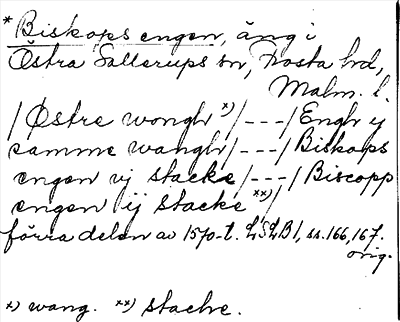 * Biskops engen, äng i
Östra Sallerups sn, Frosta hd,
Malm. l.
/ Østre wongh x) / - - - / Engh ij
samme wangh / - - - / Biskops
engen vj stacke / - - - / Biscopp
engen ij stacke xx) /
förra delen av 1570-t. LSLB1, ss. 166, 167.
orig.
x) wang. xx) stache.